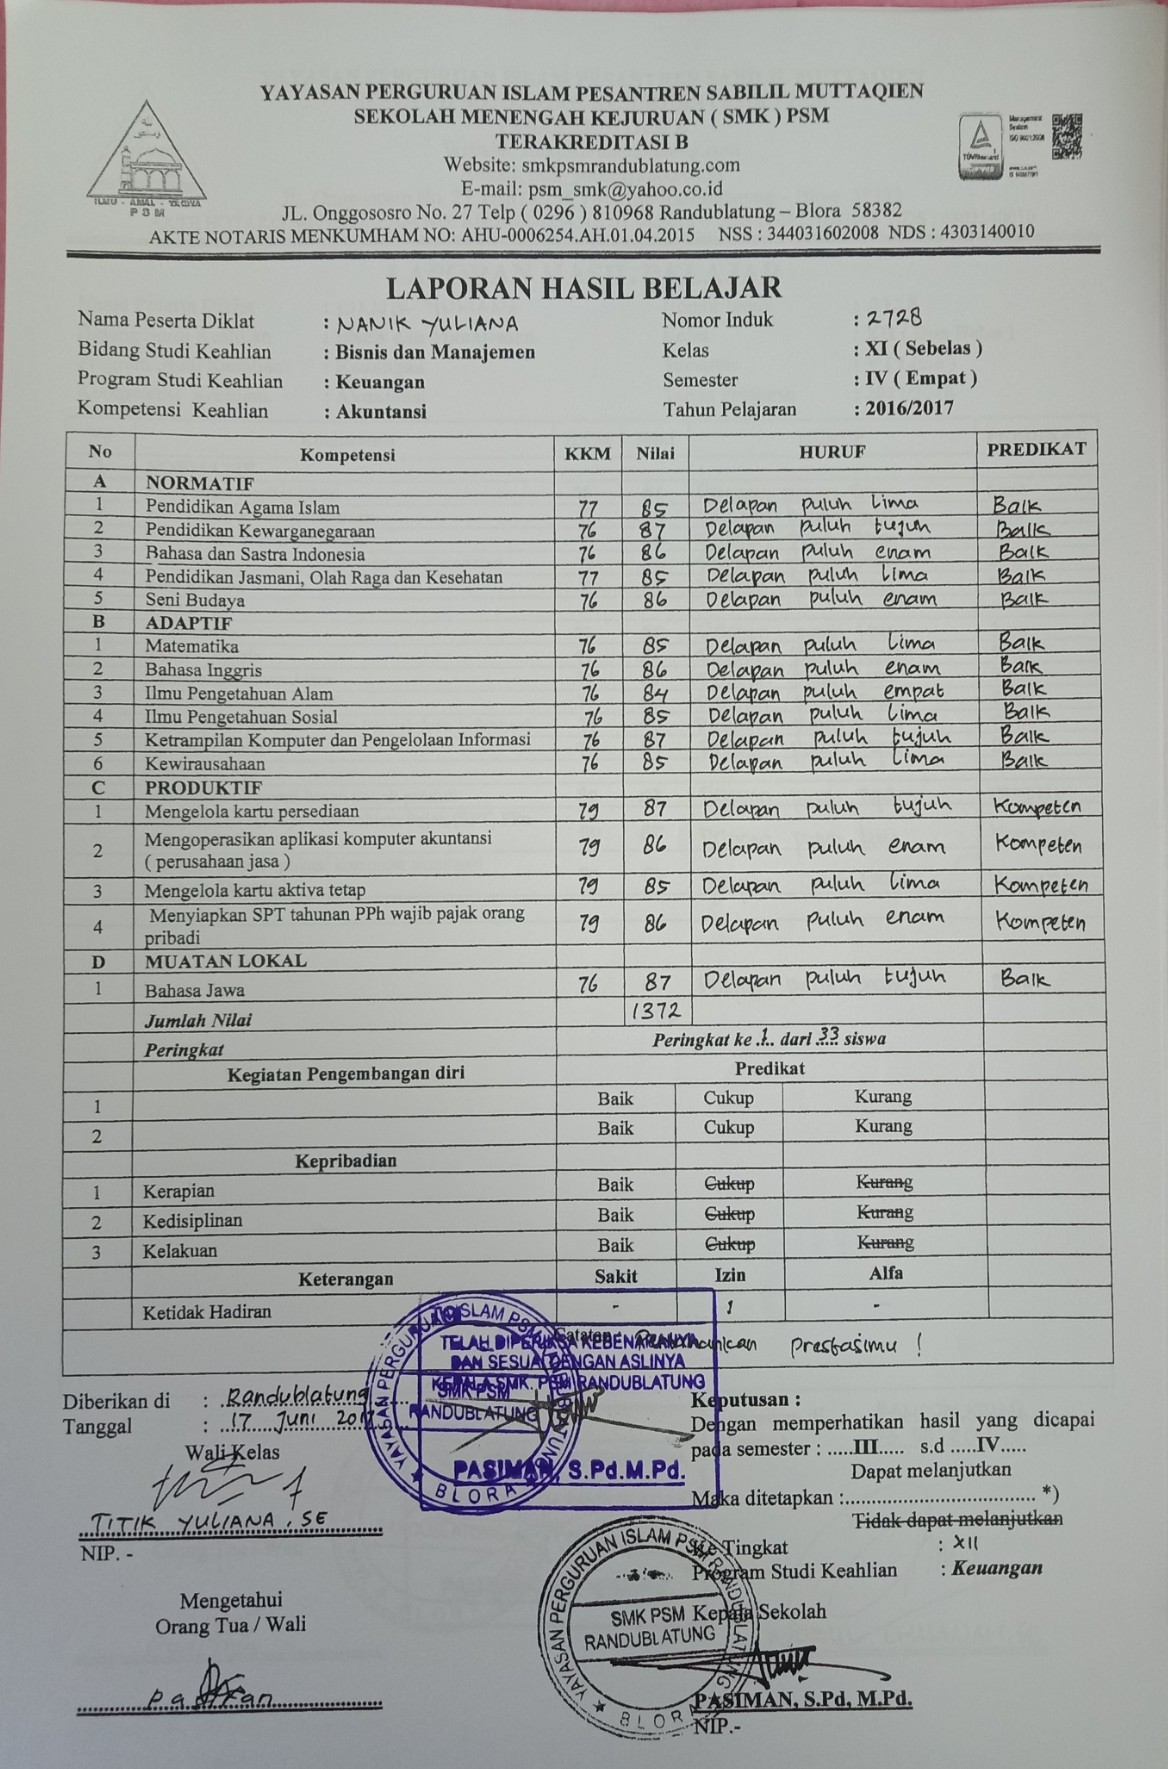 YAYASAN PERGURUAN ISLAM PESANTREN SABILIL MUTTAQIEN
SEKOLAH MENENGAH KEJURUAN ( SMK ) PSM
TERAKREDITASI B
Website: smkpsmrandublatung.com
E-mail: psm_smk@yahoo.co.id
JL. Onggososro No. 27 Telp ( 0296 ) 810968 Randublatung – Blora 58382
AKTE NOTARIS MENKUMHAM NO: AHU-0006254.AH.01.04.2015 NSS : 344031602008 NDS : 4303140010
ILMU - AMAL - TAQWA
P S M
Management
System
ISO 9001:2008
LAPORAN HASIL BELAJAR
Nama Peserta Diklat : NANIK YULIANA Nomor Induk : 2728
Bidang Studi Keahlian : Bisnis dan Manajemen Kelas : XI ( Sebelas )
Program Studi Keahlian : Keuangan Semester : IV ( Empat )
Kompetensi Keahlian : Akuntansi Tahun Pelajaran : 2016/2017
No Kompetensi KKM Nilai HURUF PREDIKAT
A NORMATIF
1 Pendidikan Agama Islam 77 85 Delapan puluh lima Baik
2 Pendidikan Kewarganegaraan 76 87 Delapan puluh tujuh Baik
3 Bahasa dan Sastra Indonesia 76 86 Delapan puluh enam Baik
4 Pendidikan Jasmani, Olah Raga dan Kesehatan 77 85 Delapan puluh lima Baik
5 Seni Budaya 76 86 Delapan puluh enam Baik
B ADAPTIF
1 Matematika 76 85 Delapan puluh lima Baik
2 Bahasa Inggris 76 86 Delapan puluh enam Baik
3 Ilmu Pengetahuan Alam 76 84 Delapan puluh empat Baik
4 Ilmu Pengetahuan Sosial 76 85 Delapan puluh lima Baik
5 Ketrampilan Komputer dan Pengelolaan Informasi 76 87 Delapan puluh tujuh Baik
6 Kewirausahaan 76 85 Delapan puluh lima Baik
C PRODUKTIF
1 Mengelola kartu persediaan 79 87 Delapan puluh tujuh Kompeten
2 Mengoperasikan aplikasi komputer akuntansi
( perusahaan jasa ) 79 86 Delapan puluh enam Kompeten
3 Mengelola kartu aktiva tetap 79 85 Delapan puluh lima Kompeten
4 Menyiapkan SPT tahunan PPh wajib pajak orang
pribadi 79 86 Delapan puluh enam Kompeten
D MUATAN LOKAL
1 Bahasa Jawa 76 87 Delapan puluh tujuh Baik
Jumlah Nilai 1372
Peringkat Peringkat ke .1.. dari .33. siswa
Kegiatan Pengembangan diri Predikat
1 Baik Cukup Kurang
2 Baik Cukup Kurang
Kepribadian
1 Kerapian Baik Cukup Kurang
2 Kedisiplinan Baik Cukup Kurang
3 Kelakuan Baik Cukup Kurang
Keterangan Sakit Izin Alfa
Ketidak Hadiran - 1 -
Catatan : Pertahankan prestasimu !
TELAH DIPERIKSA KEBENARANYA
DAN SESUAI DENGAN ASLINYA
KEPALA SMK. PSM RANDUBLATUNG
PASIMAN, S.Pd.M.Pd.
YAYASAN PERGURUAN ISLAM PSM RANDUBLATUNG
SMK PSM
RANDUBLATUNG
★ BLORA
Diberikan di : Randublatung
Tanggal : 17 Juni 2017
Wali Kelas
TITIK YULIANA, SE
NIP. -
Mengetahui
Orang Tua / Wali
Keputusan :
Dengan memperhatikan hasil yang dicapai
pada semester : .....III..... s.d .....IV.....
Dapat melanjutkan
Maka ditetapkan :.................................. *)
Tidak dapat melanjutkan
Ke Tingkat : XII
Program Studi Keahlian : Keuangan
Kepala Sekolah
YAYASAN PERGURUAN ISLAM PSM RANDUBLATUNG
SMK PSM
RANDUBLATUNG
★ BLORA
PASIMAN, S.Pd, M.Pd.
NIP.-